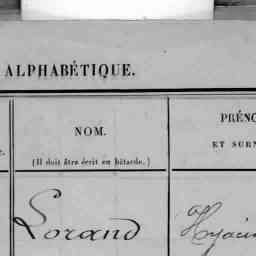 ALPHABÉTIQUE.
NOM.
(Il doit être écrit en bâtarde.)
PRÉNO
ET SURN
Lorand